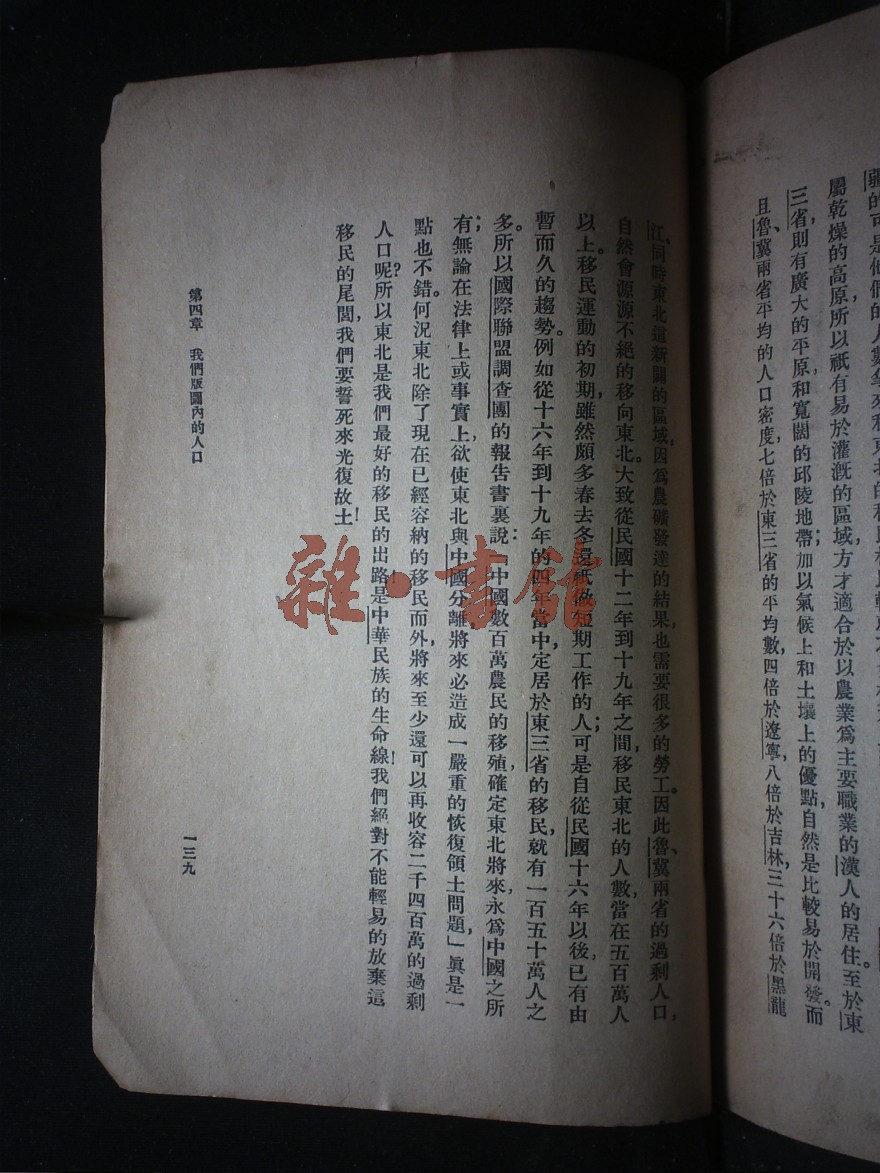 疆的可是他們的人數
屬乾燥的高原所以祇有易於灌漑的區域，方才適合於以農業爲主要職業的漢人的居住。至於東
三省，則有廣大的平原和寬闊的邱陵地帶；加以氣候上和土壤上的優點，自然是比較易於開發。而
且魯、冀兩省平均的人口密度，七倍於東三省的平均數，四倍於遼寧，八倍於吉林，三十六倍於黑龍
江。同時東北這新闢的區域，因爲農礦發達的結果，也需要很多的勞工。因此魯、冀兩省的過剩人口，
自然會源源不絕的移向東北。大致從民國十二年到十九年之間，移民東北的人數，當在五百萬人
以上。移民運動的初期，雖然頗多春去冬還祇做短期工作的人；可是自從民國十六年以後，已有由
暫而久的趨勢。例如從十六年到十九年的四年當中，定居於東三省的移民，就有一百五十萬人之
多。所以國際聯盟調查團的報告書裏說：「中國數百萬農民的移殖，確定東北將來，永爲中國之所
有；無論在法律上或事實上，欲使東北與中國分離，將來必造成一嚴重的恢復領土問題，」眞是一
點也不錯。何況東北除了現在已經容納的移民而外，將來至少還可以再收容二千四百萬的過剩
人口呢？所以東北是我們最好的移民的出路！是中華民族的生命線！我們絕對不能輕易的放棄這
移民的尾閭，我們要誓死來光復故土！
第四章　我們版圖內的人口
一三九
雜·書館